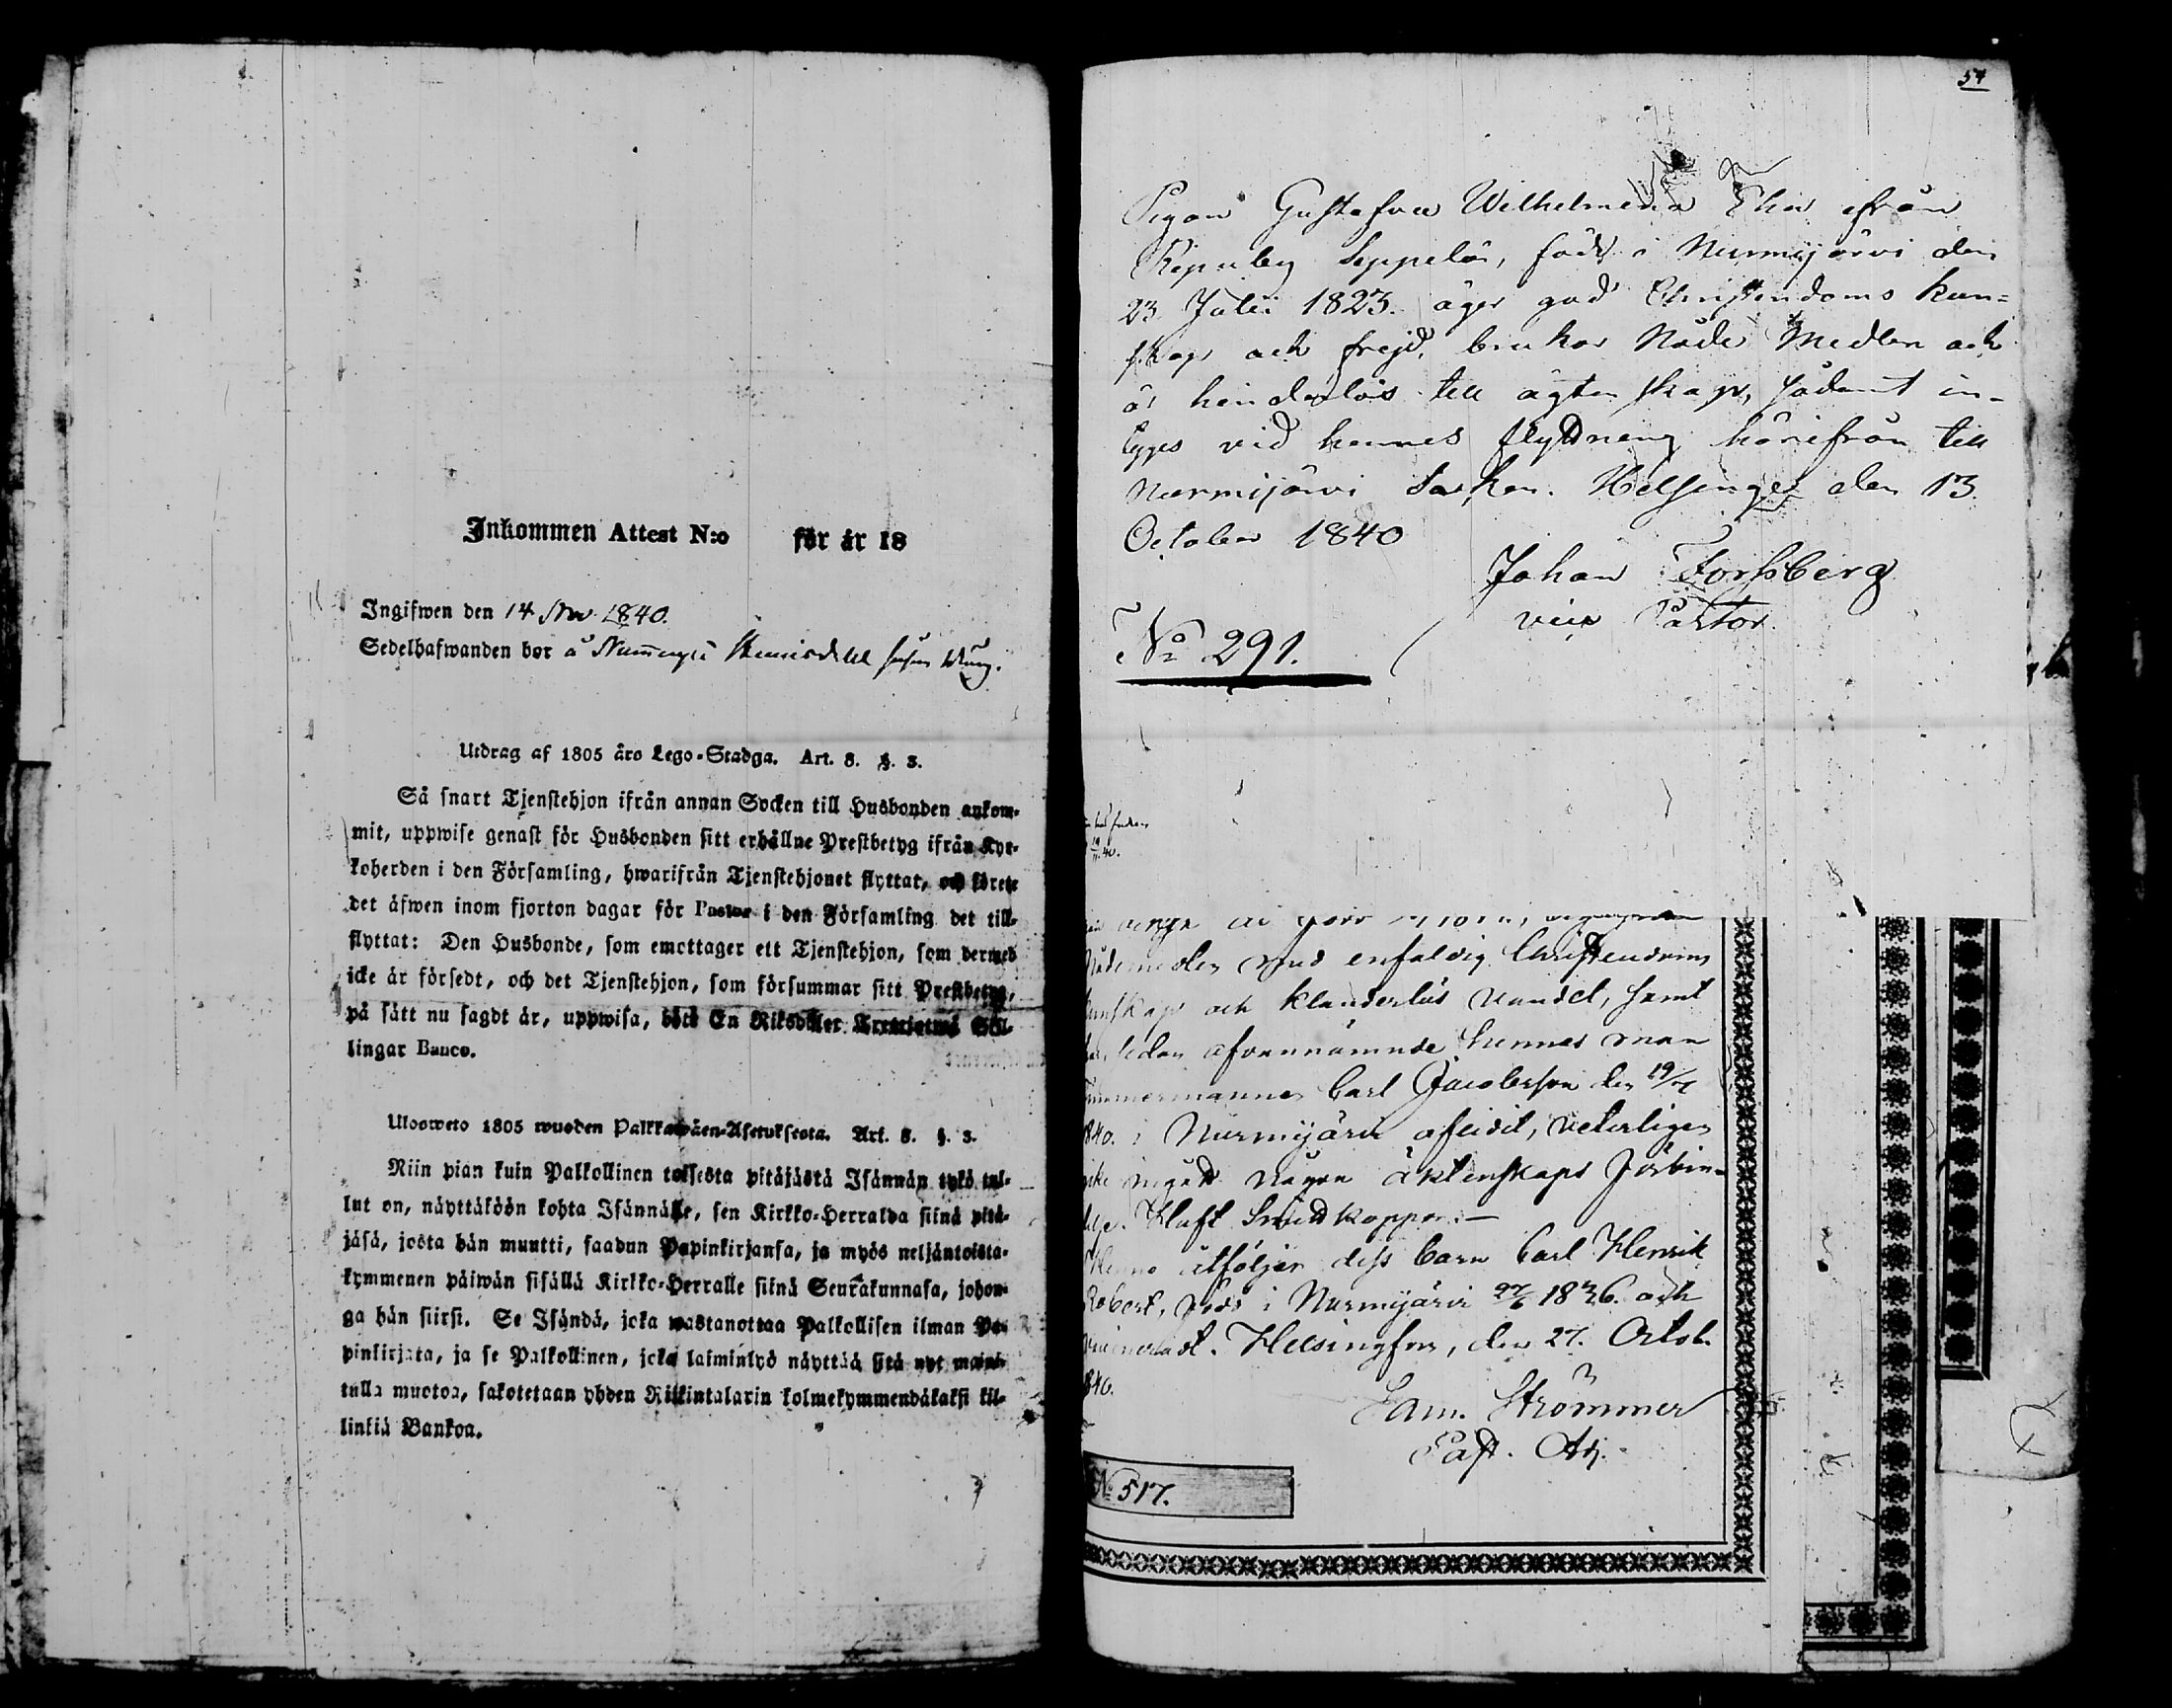 Inkommen Attest N:o för år 18
Ingifwen den 14 Nov 1840.
Sedelhafwanden bor å
Utdrag af 1805 års Lego-Stadga. Art. 8. §. 3.
Så snart Tjenstehjon ifrån annan Socken till Husbonden ankom-
mit, uppwise genast för Husbonden sitt erhållne Prestbetyg ifrån Kyr-
koherden i den Församling, hwarifrån Tjenstehjonet flyttat, och förete
det äfwen inom fjorton dagar för Pastor i den Församling det till-
flyttat: Den Husbonde, som emottager ett Tjenstehjon, som dermed
icke är försedt, och det Tjenstehjon, som försummar sitt Prestbetyg,
på sätt nu sagdt är, uppwisa, böte En Riksdaler Trettiotwå Skil-
lingar Banco.
Uloosweto 1805 wuoden Palkkawäen-Asetuksesta. Art. 8. §. 3.
Niin pian kuin Palkollinen toisesta pitäjästä Isännän tykö tul-
lut on, näyttäköön kohta Isännälle, sen Kirkko-Herralda siinä pitä-
jäsä, josta hän muutti, saadun Papinkirjansa, ja myös neljäntoista-
kymmenen päiwän sisällä Kirkko-Herralle siinä Seurakunnasa, johon-
ga hän siirsi. Se Isändä, joka wastanottaa Palkollisen ilman Pa-
pinkirjata, ja se Palkollinen, joka laiminlyö näyttää sitä nyt maini-
tulla muotoa, sakotetaan yhden Riikintalarin kolmekymmendäkaksi kil-
linkiä Bankoa.
54
Pigan Gustafva Wilhelmina Ek ifrån
Ripuby Seppelä, född i Nurmijärvi den
23 Julii 1823. äger god Christendoms kun=
skap och frejd, brukar Nåde Medlen och
är hinderlös till ägtenskap, sådant in-
tyges vid hennes flyttning härifrån till
Nurmijärvi Socken. Helsinge den 13
October 1840
Johan Forssberg
vice Pastor.
No 291.
Nådemedlen med enfaldig Christendoms
kunskap och klanderlös vandel, samt
sedan ofvannämnde hennes man
Timmermannen Carl Jacobsson den 19/
1840. i Nurmijärvi aflidit, veterligen
icke ingått någon äktenskaps förbin-
delse. Haft Smittkoppor.—
Henne åtföljer dess barn Carl Henrik
Robert, född i Nurmijärvi 27/6 1836. och
vaccinerad. Helsingfors, den 27. Octob.
1840.
Sam. Strömmer
Past. Adj.
No 517.